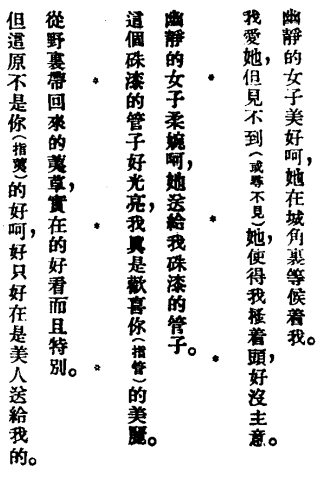 幽靜的女子美好呵，她在城角裏等候着我。
我愛她，但見不到（或尋不見）她，使得我搔着頭，好沒主意。
* * *
幽靜的女子柔婉呵，她送給我硃漆的管子。
這個硃漆的管子好光亮，我真是歡喜你（指管）的美麗。
* * *
從野裏帶回來的荑草，實在的好看而且特別。
但這原不是你（指荑）的好呵，好只好在是美人送給我的。